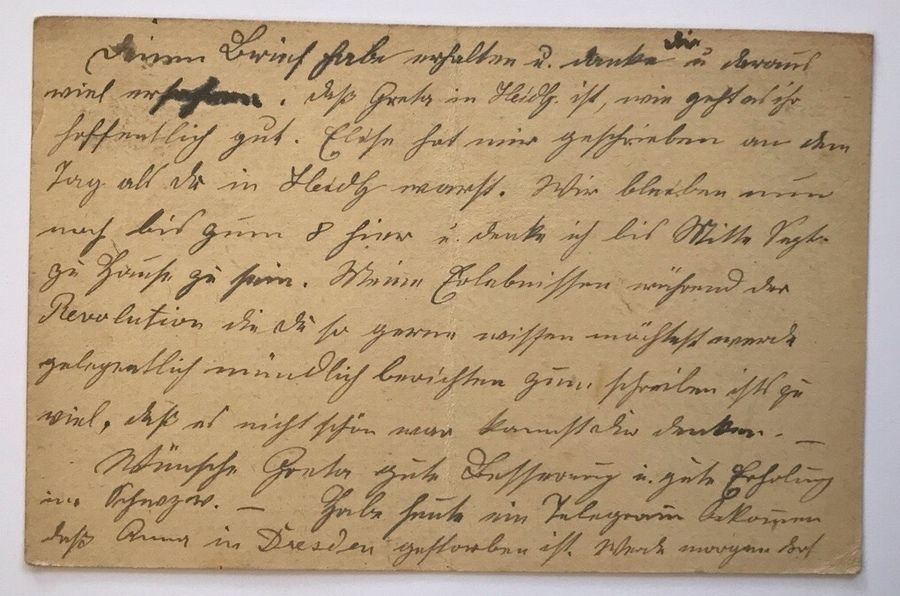 Deinen Brief habe erhalten u. danke dir u daraus
viel ersehen. daß Greta in Heidlg. ist, wie geht es ihr
hoffentlich gut. Elise hat mir geschrieben an dem
Tag als Du in Heidlg warst. Wir bleiben nun
noch bis zum 8 hier u. denke ich bis Mitte Sept.
zu Hause zu sein. Meine Erlebnissen während der
Revolution die Du so gerne wissen möchtest werde
gelegentlich mündlich berichten zum schreiben ists zu
viel, daß es nicht schön war kannst dir denken. —
Wünsche Greta gute Besserung u. gute Erholung
im Schwzw. — Habe heute ein Telegram bekommen
daß Anna in Dresden gestorben ist. Werde morgen dort